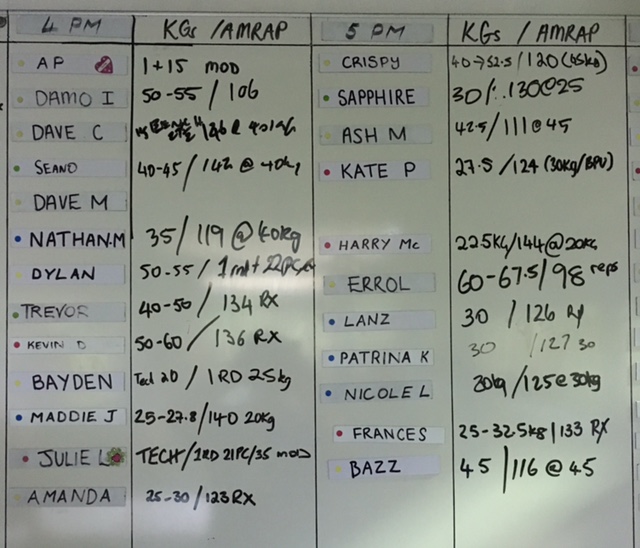 4 PM KGs / AMRAP 5 PM KGs / AMRAP
AP 1+15 MOD CRISPY 40→52.5/120 (45kg)
DAMO I 50-55/106 SAPPHIRE 30/..130@25
DAVE C ASH M 42.5/111@45
SEANO 40-45/142 @ 40kg KATE P 27.5/124 (30KG/BPU)
DAVE M
NATHAN.M 35/119 @40kg HARRY Mc 22.5KG/144@20KG
DYLAN 50-55/ ERROL 60-67.5/98 reps
TREVOR 40-50/134 RX LANZ 30/126
KEVIN D 50-60/136 RX PATRINA K 30/127 30
BAYDEN Tech 20/1RD 25kg NICOLE L 30kg/125@30kg
MADDIE J 25-27.8/140 20kg FRANCES 25-32.5kg/133 RX
JULIE L TECH/1RD 21PC/35 MOD BAZZ 45/116 @ 45
AMANDA 25-30/123 RX